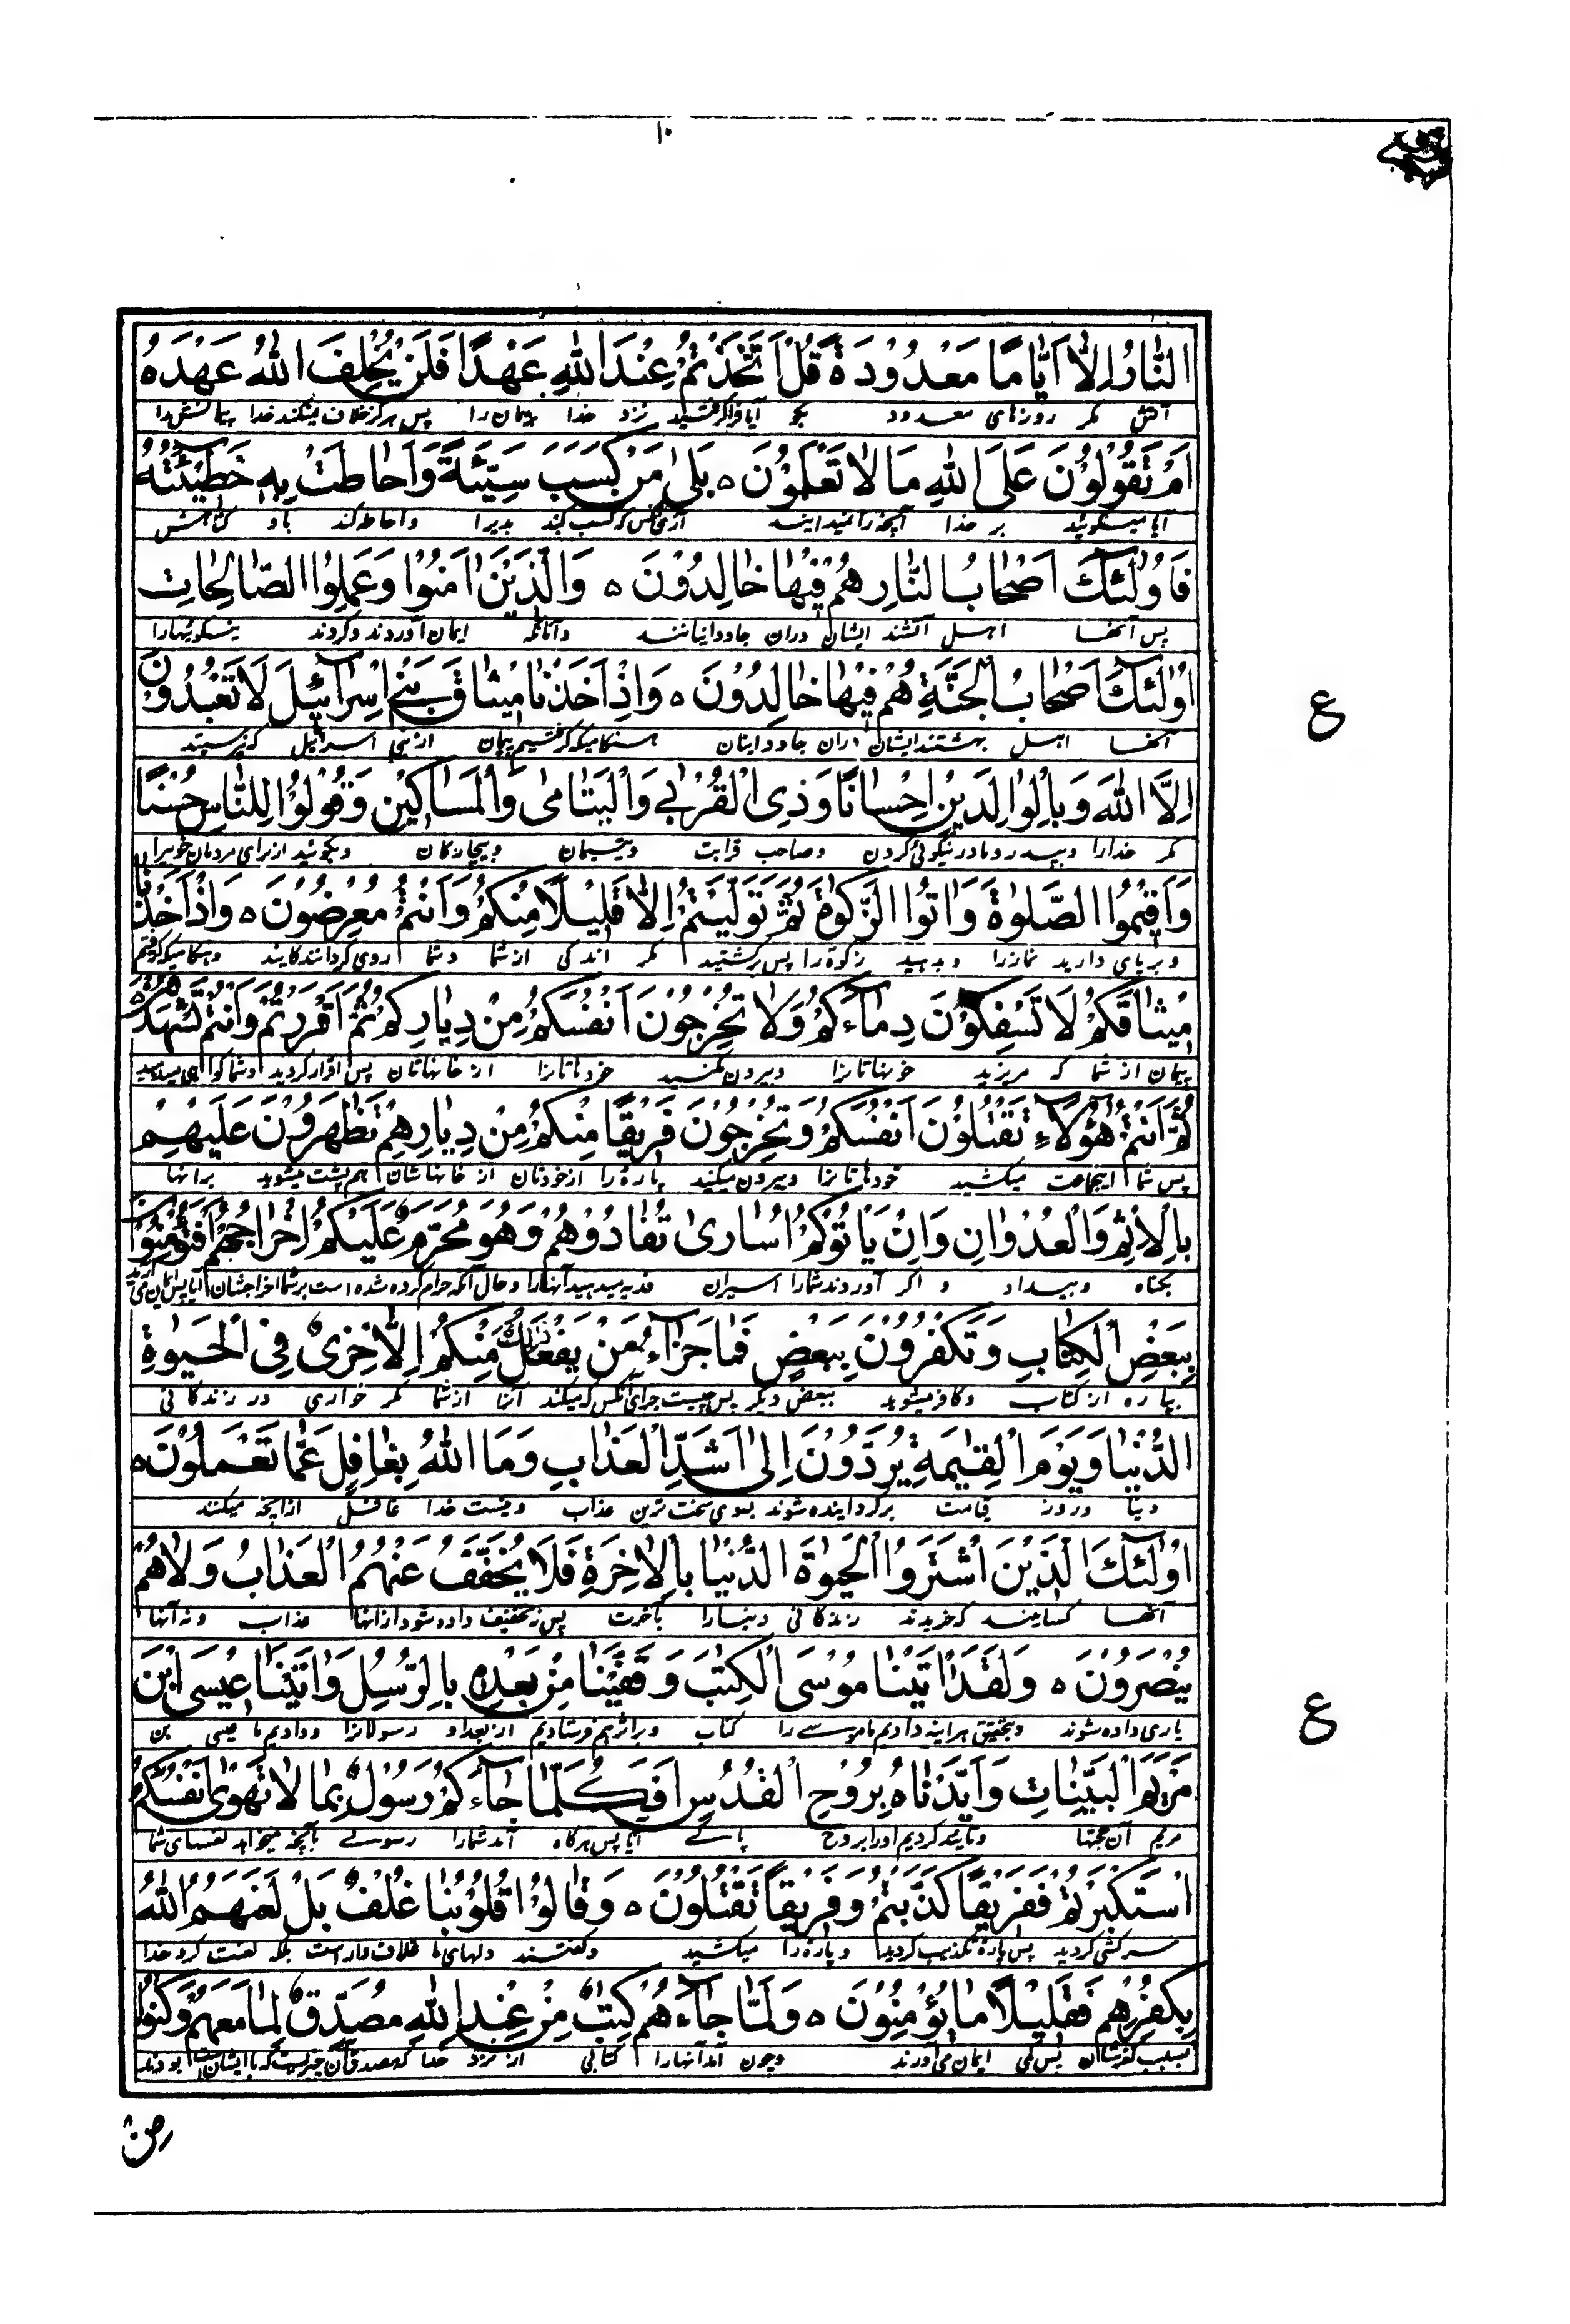 ١٠
النَّارُ اِلَّا اَيَّامًا مَعْدُوْدَةً قُلْ اَتَّخَذْتُمْ عِنْدَ اللهِ عَهْدًا فَلَنْ يُخْلِفَ اللهُ عَهْدَهُ
آتش مگر روزهای معدود بگو آیا فراگرفتید نزد خدا پیمان را پس هرگز خلاف نمیکند خدا
اَمْ تَقُوْلُوْنَ عَلَى اللهِ مَا لَا تَعْلَمُوْنَ ٥ بَلٰى مَنْ كَسَبَ سَيِّئَةً وَاَحَاطَتْ بِهٖ خَطِيْئَتُهُ
آیا میگوئید بر خدا آنچه را نمیدانید آری هر کس که کسب کند بدیرا واحاطه کند باو گناهش
فَاُولٰئِكَ اَصْحَابُ النَّارِ هُمْ فِيْهَا خَالِدُوْنَ ٥ وَالَّذِيْنَ اٰمَنُوْا وَعَمِلُوا الصَّالِحَاتِ
پس آنها اهل آتشند ایشان دران جاودانیانند وآنانکه ایمان آوردند وکردند نیکوئیهارا
اُولٰئِكَ اَصْحَابُ الْجَنَّةِ هُمْ فِيْهَا خَالِدُوْنَ ٥ وَاِذْ اَخَذْنَا مِيْثَاقَ بَنِيْ اِسْرَآئِيْلَ لَا تَعْبُدُوْنَ
آنها اهل بهشتند ایشان دران جاودانیان هنگامیکه گرفتیم پیمان از بنی اسرائیل که نپرستید
ع
اِلَّا اللهَ وَبِالْوَالِدَيْنِ اِحْسَانًا وَذِى الْقُرْبٰى وَالْيَتَامٰى وَالْمَسَاكِيْنِ وَقُوْلُوْا لِلنَّاسِ حُسْنًا
مگر خدارا وبپدر ومادر نیکوئی کردن وصاحب قرابت ویتیمان وبیچارگان وبگوئید از برای مردمان خوبرا
وَاَقِيْمُوا الصَّلٰوةَ وَاٰتُوا الزَّكٰوةَ ثُمَّ تَوَلَّيْتُمْ اِلَّا قَلِيْلًا مِنْكُمْ وَاَنْتُمْ مُعْرِضُوْنَ ٥ وَاِذْ اَخَذْنَا
وبرپای دارید نمازرا وبدهید زکوة را پس برگشتید مگر اندکی از شما وشما روی گردانندگانید وهنگامیکه گرفتیم
مِيْثَاقَكُمْ لَا تَسْفِكُوْنَ دِمَآءَكُمْ وَلَا تُخْرِجُوْنَ اَنْفُسَكُمْ مِنْ دِيَارِكُمْ ثُمَّ اَقْرَرْتُمْ وَاَنْتُمْ تَشْهَدُوْنَ
پیمان از شما که مریزید خونهاتانرا وبیرون مکنید خودهاتانرا از خانهاتان پس اقرار کردید وشما گواهی میدهید
ثُمَّ اَنْتُمْ هٰؤُلَاءِ تَقْتُلُوْنَ اَنْفُسَكُمْ وَتُخْرِجُوْنَ فَرِيْقًا مِنْكُمْ مِنْ دِيَارِهِمْ تَظٰهَرُوْنَ عَلَيْهِمْ
پس شما اینجماعت میکشید خودهاتانرا وبیرون میکنید پارهٔ را از خودتان از خانهاشان هم پشت میشوید برانها
بِالْاِثْمِ وَالْعُدْوَانِ وَاِنْ يَاْتُوْكُمْ اُسَارٰى تُفَادُوْهُمْ وَهُوَ مُحَرَّمٌ عَلَيْكُمْ اِخْرَاجُهُمْ اَفَتُؤْمِنُوْنَ
بگناه وبیداد و اگر آوردند شمارا اسیران فدیه میدهید آنهارا وحال آنکه حرام کرده شده است برشما اخراجشان
بِبَعْضِ الْكِتَابِ وَتَكْفُرُوْنَ بِبَعْضٍ فَمَا جَزَآءُ مَنْ يَفْعَلُ ذٰلِكَ مِنْكُمْ اِلَّا خِزْىٌ فِى الْحَيٰوةِ
بپاره از کتاب وکافر میشوید ببعض دیگر پس چیست جزای آنکس که میکند آنرا از شما مگر خواری در زندگانی
الدُّنْيَا وَيَوْمَ الْقِيٰمَةِ يُرَدُّوْنَ اِلٰى اَشَدِّ الْعَذَابِ وَمَا اللهُ بِغَافِلٍ عَمَّا تَعْمَلُوْنَ ٥
دنیا ورروز قیامت برگردانیده شوند بسوی سخت ترین عذاب ونیست خدا غافل ازانچه میکنند
اُولٰئِكَ الَّذِيْنَ اشْتَرَوُا الْحَيٰوةَ الدُّنْيَا بِالْاٰخِرَةِ فَلَا يُخَفَّفُ عَنْهُمُ الْعَذَابُ وَلَا هُمْ
آنها کسانیند که خریدند زندگانی دنیارا بآخرت پس نه تخفیف داده شود ازانها عذاب ونه آنها
يُنْصَرُوْنَ ٥ وَلَقَدْ اٰتَيْنَا مُوْسَى الْكِتٰبَ وَقَفَّيْنَا مِنْ بَعْدِهٖ بِالرُّسُلِ وَاٰتَيْنَا عِيْسَى ابْنَ
یاری داده شوند وبتحقیق هراینه دادیم ما موسے را کتاب وبراثر هم فرستادیم از بعد او رسولانرا ودادیم ما عیسی بن
ع
مَرْيَمَ الْبَيِّنَاتِ وَاَيَّدْنَاهُ بِرُوْحِ الْقُدُسِ اَفَكُلَّمَا جَآءَكُمْ رَسُوْلٌ بِمَا لَا تَهْوٰى اَنْفُسُكُمُ
مریم آن حجتها وتایید کردیم اورا بروح پاکے آیا پس هرگاه آمد شمارا رسولے بآنچه نمیخواهد نفسهای شما
اسْتَكْبَرْتُمْ فَفَرِيْقًا كَذَّبْتُمْ وَفَرِيْقًا تَقْتُلُوْنَ ٥ وَقَالُوْا قُلُوْبُنَا غُلْفٌ بَلْ لَعَنَهُمُ اللهُ
سرکشی کردید پس پارهٔ تکذیب کردید وپارهٔ را میکشید وگفتند دلهای ما غلاف دار است بلکه لعنت کرد خدا
بِكُفْرِهِمْ فَقَلِيْلًا مَا يُؤْمِنُوْنَ ٥ وَلَمَّا جَآءَهُمْ كِتٰبٌ مِنْ عِنْدِ اللهِ مُصَدِّقٌ لِمَا مَعَهُمْ وَكَانُوْا
بسبب کفرشان پس کمی ایمان می آورند وچون آمد آنهارا کتابی از نزد خدا که مصدق آن چیزیست که با ایشانست بودند